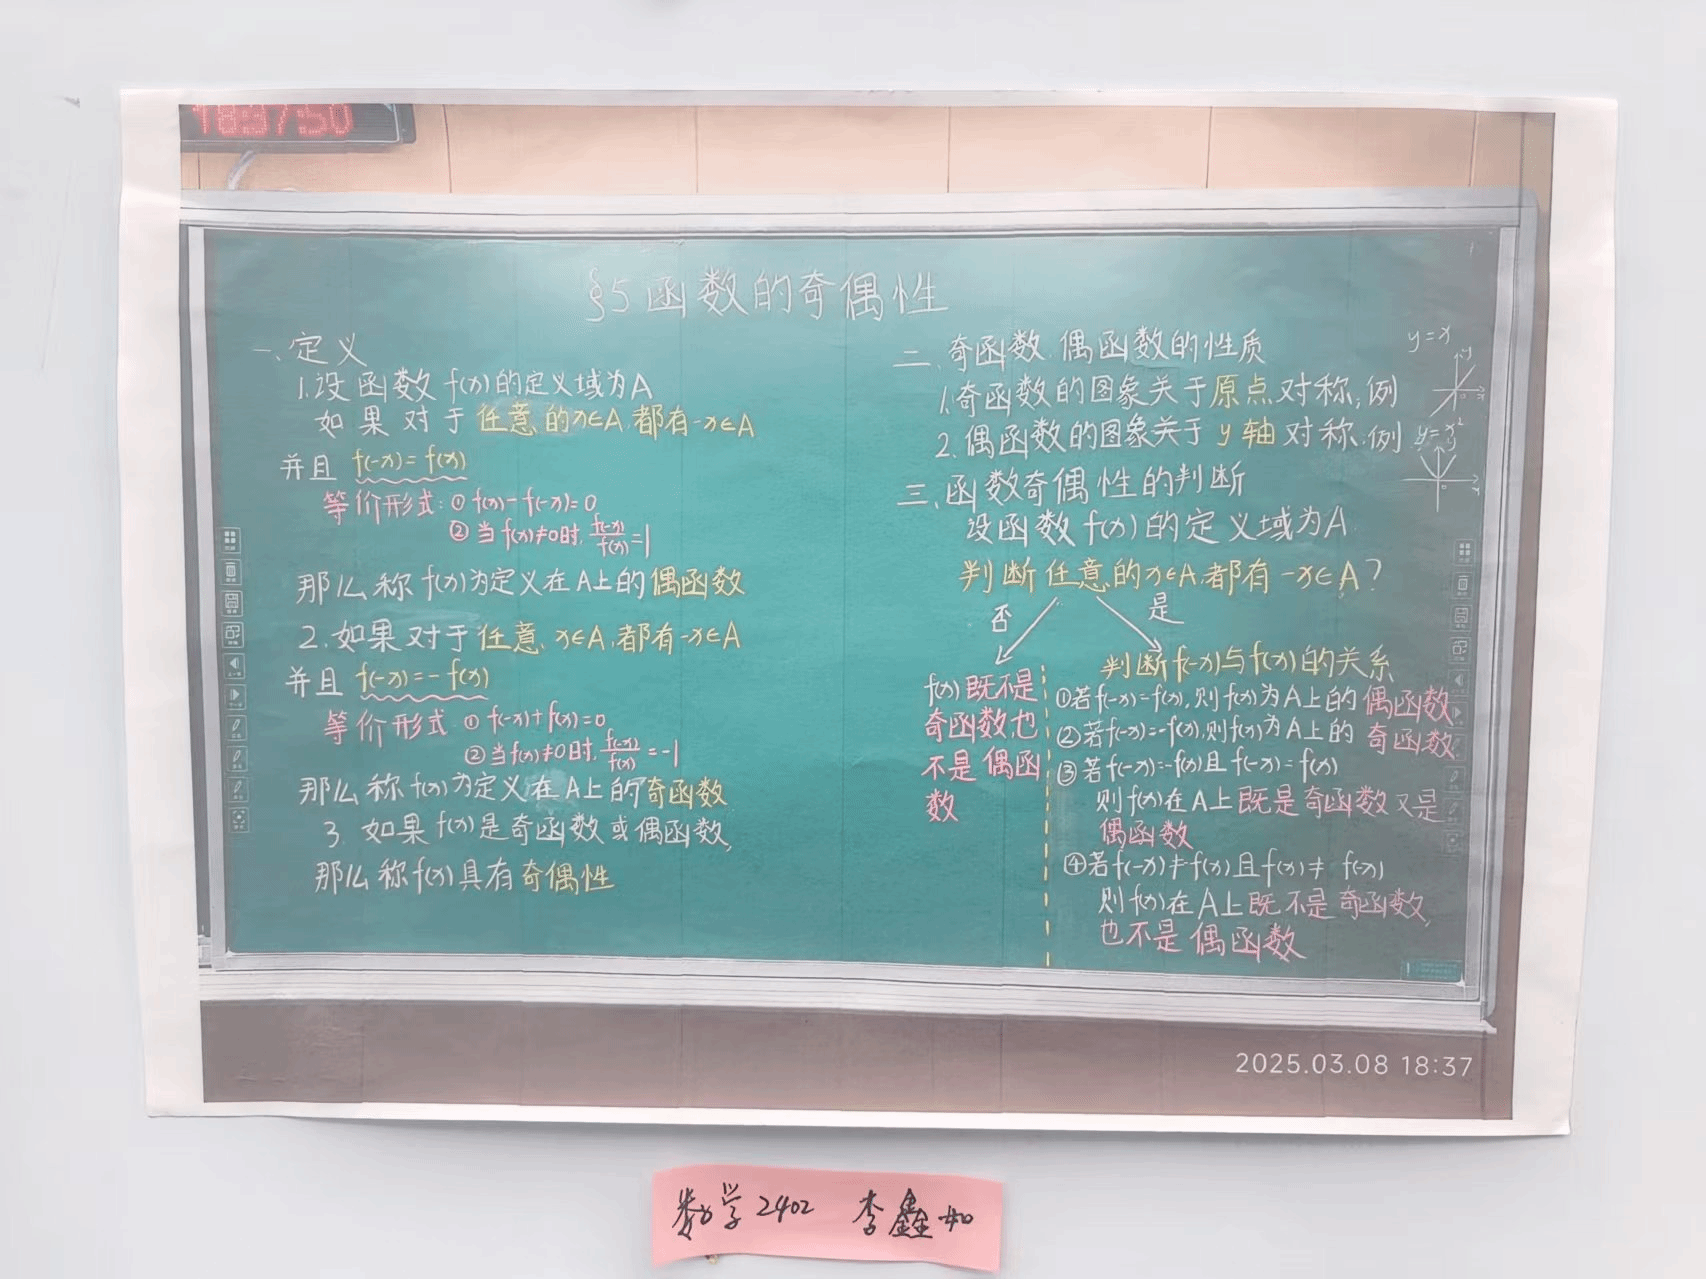 18:37:50
§5 函数的奇偶性
一、定义
1.设函数 f(x)的定义域为A
如果对于任意的x∈A,都有-x∈A
并且 f(-x)=f(x)
等价形式:① f(x)-f(-x)=0
② 当f(x)≠0时, f(-x)/f(x)=1
那么称f(x)为定义在A上的偶函数
2.如果对于任意 x∈A,都有-x∈A
并且 f(-x)=-f(x)
等价形式 ① f(-x)+f(x)=0
②当f(x)≠0时, f(-x)/f(x)=-1
那么称f(x)为定义在A上的奇函数
3. 如果f(x)是奇函数或偶函数,
那么称f(x)具有奇偶性
二、奇函数、偶函数的性质
1.奇函数的图象关于原点对称,例
y=x
2.偶函数的图象关于y轴对称,例
y=x²
三、函数奇偶性的判断
设函数f(x)的定义域为A
判断任意的x∈A,都有-x∈A?
否
是
f(x)既不是
奇函数,也
不是偶函
数
判断f(-x)与f(x)的关系
①若f(-x)=f(x),则f(x)为A上的偶函数
②若f(-x)=-f(x),则f(x)为A上的奇函数
③若f(-x)=-f(x)且f(-x)=f(x)
则f(x)在A上既是奇函数又是
偶函数
④若f(-x)≠f(x)且f(x)≠ f(-x)
则f(x)在A上既不是奇函数,
也不是偶函数
2025.03.08 18:37
数学2402 李鑫如